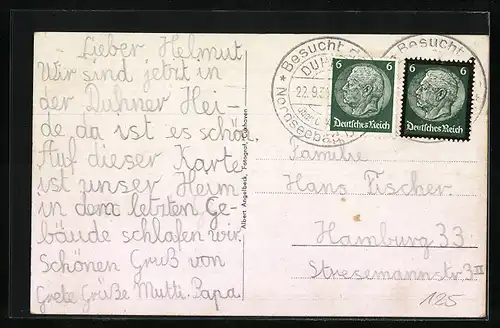 Lieber Helmut
Wir sind jetzt in
der Duhner Hei-
de, da ist es schön.
Auf dieser Karte
ist unser Heim
in dem letzten Ge-
bäude schlafen wir.
Schönen Gruß von
Grete Grüße Mutti. Papa
Albert Angelbeck, Fotograf, Cuxhaven
Besucht
22.9.3
Nordseebad
6 6
Deutsches Reich
Besucht
6 6
Deutsches Reich
Familie
Hans Fischer
Hamburg 33
Stresemannstr. 3 II
125